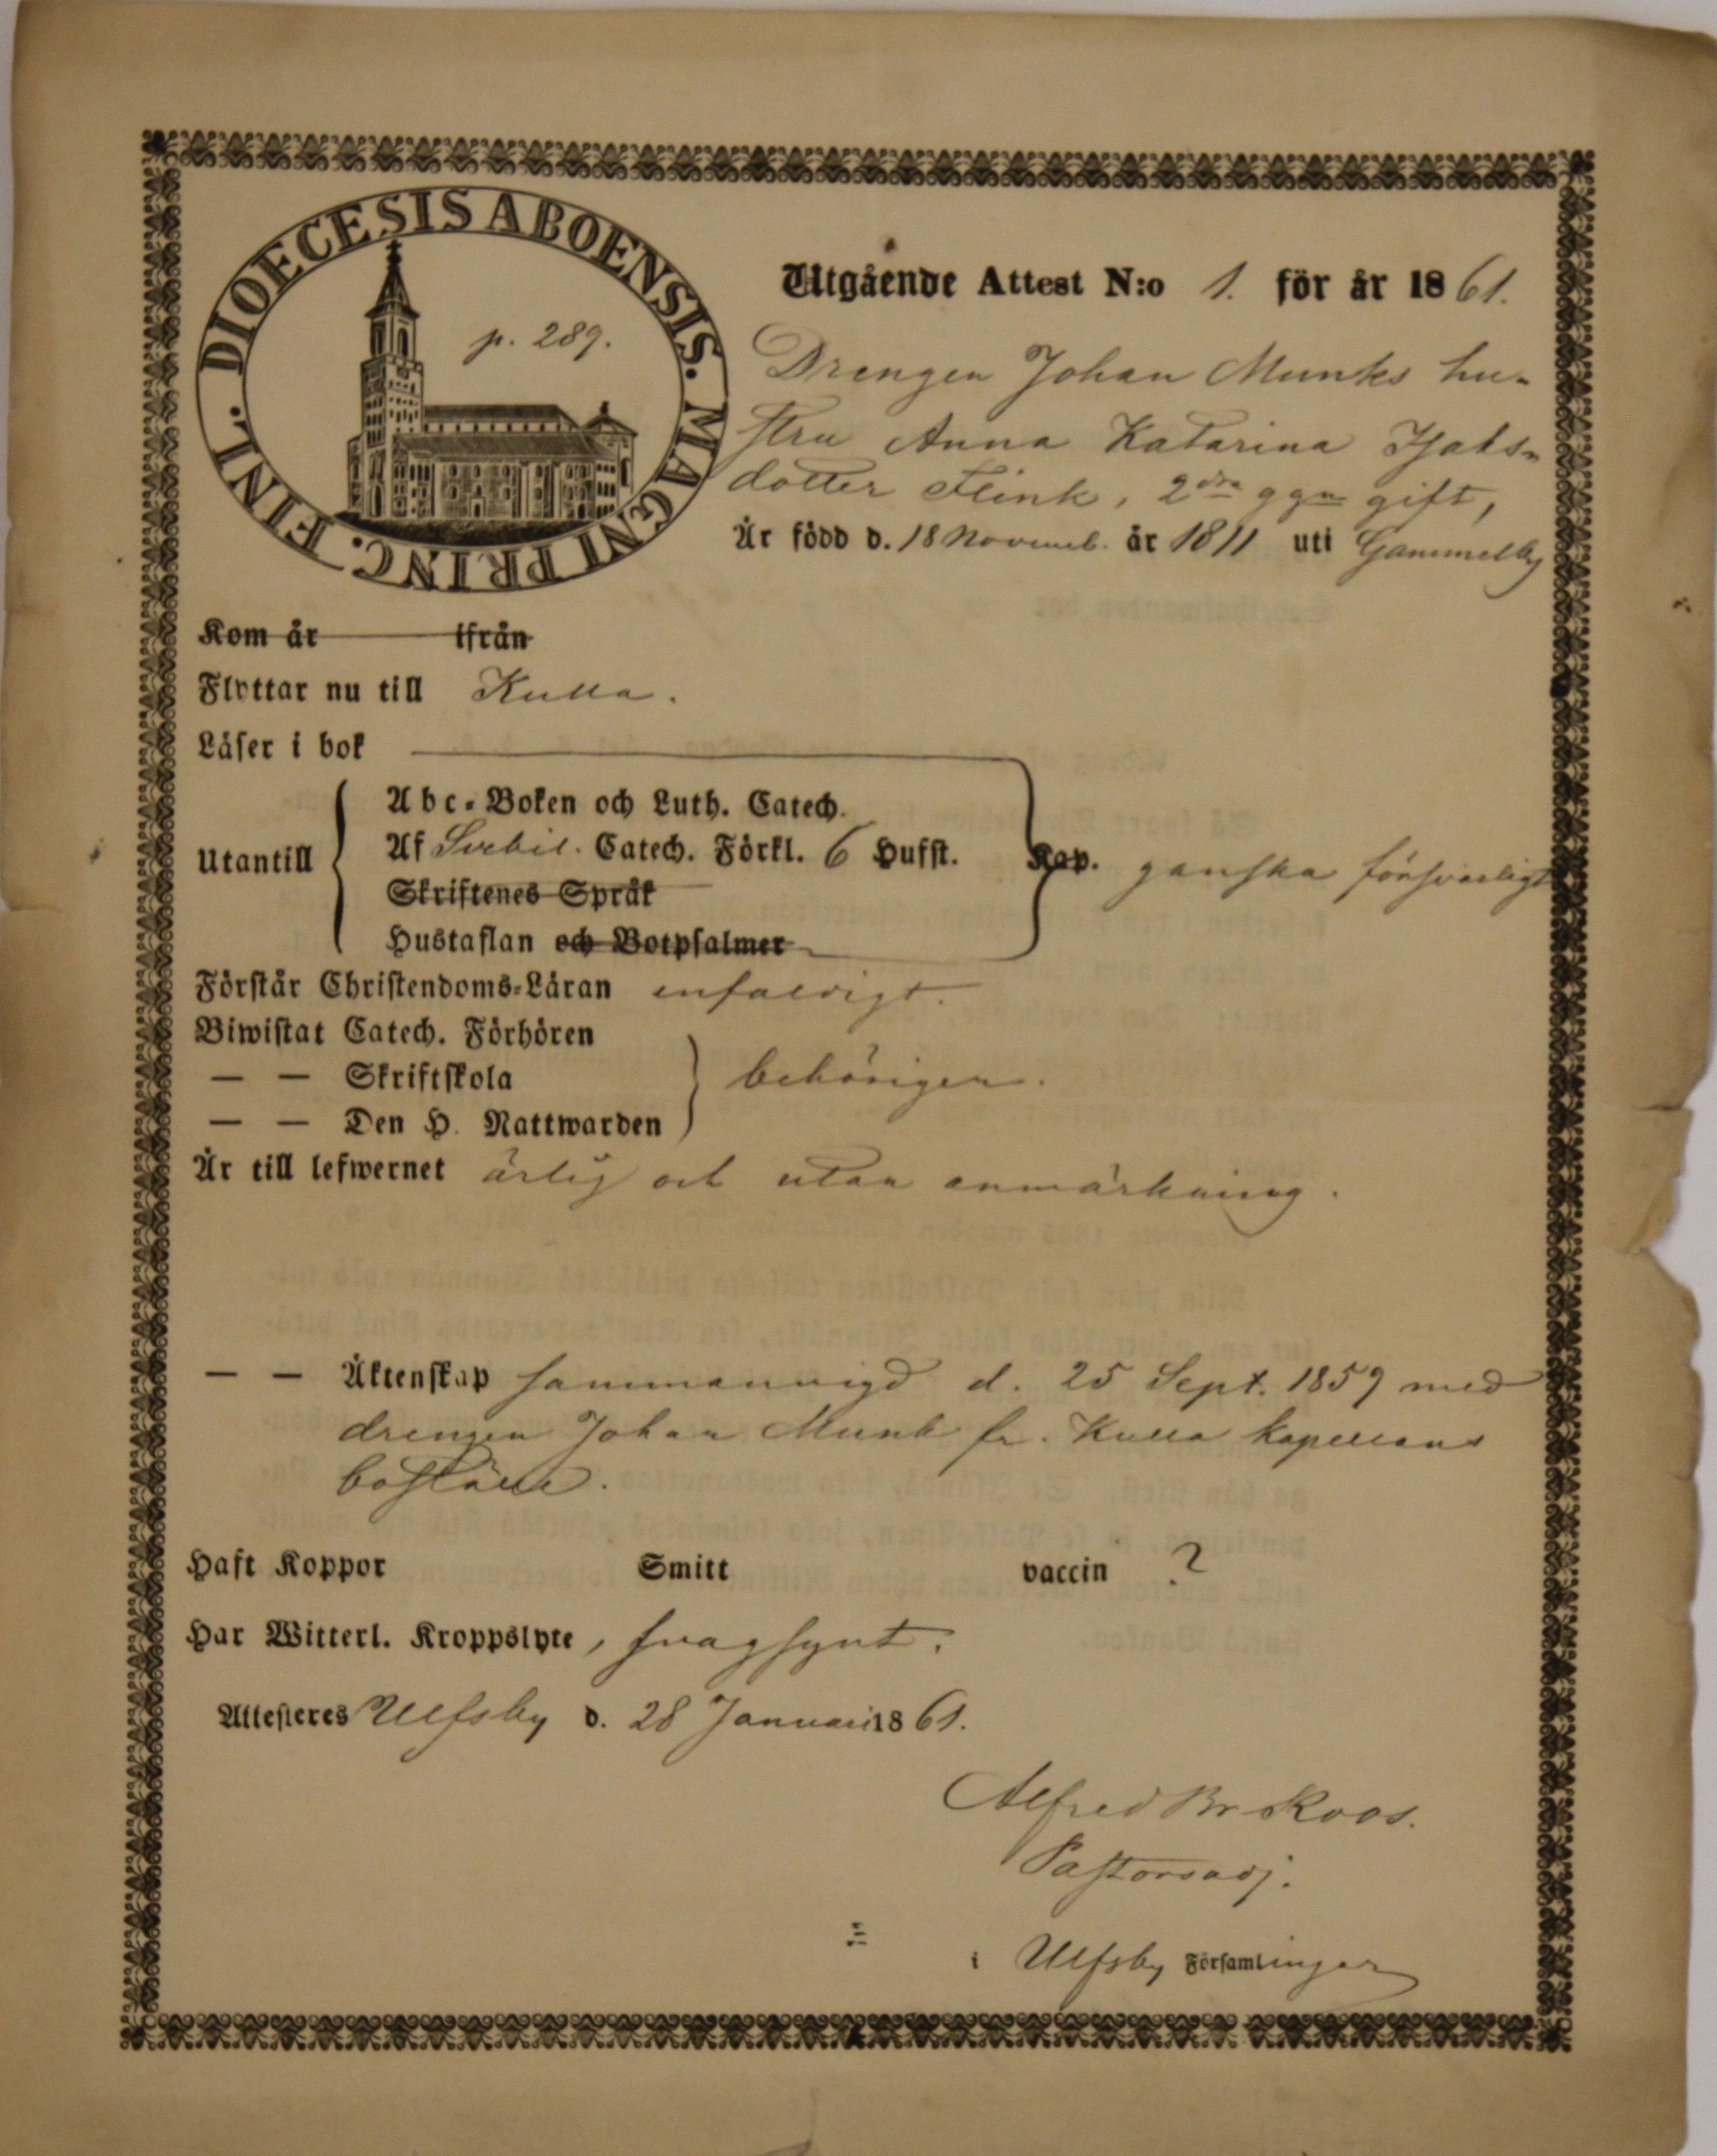 DIOECESIS ABOENSIS. MAGNI PRINC. FINL.
p. 289.
Utgående Attest N:o 1. för år 1861.
Drengen Johan Munks hu-
stru Anna Katarina Isaks-
dotter Flink, 2dra ggn gift,
Är född d. 18 Novemb. år 1811 uti Gammelby
Kom år ifrån
Flyttar nu till Kulla.
Läser i bok
Utantill
Abc-Boken och Luth. Catech.
Af Svebil. Catech. Förkl. 6 Hufst. Kap. ganska försvarligt
Skriftenes Språk
Hustaflan och Botpsalmer
Förstår Christendoms-Läran enfaldigt.
Biwistat Catech. Förhören
— — Skriftskola behörigen.
— — Den H. Nattwarden
Är till lefwernet ärlig och utan anmärkning.
— — Äktenskap sammanvigd d. 25 Sept. 1859 med
drengen Johan Munk fr. Kulla kapellans
boställe.
Haft Koppor Smitt vaccin ?
Har Witterl. Kroppslyte, svagsynt.
Attesteres Ulfsby d. 28 Januari 1861.
Alfred Br. Roos.
Pastorsadj.
i Ulfsby Församlingar